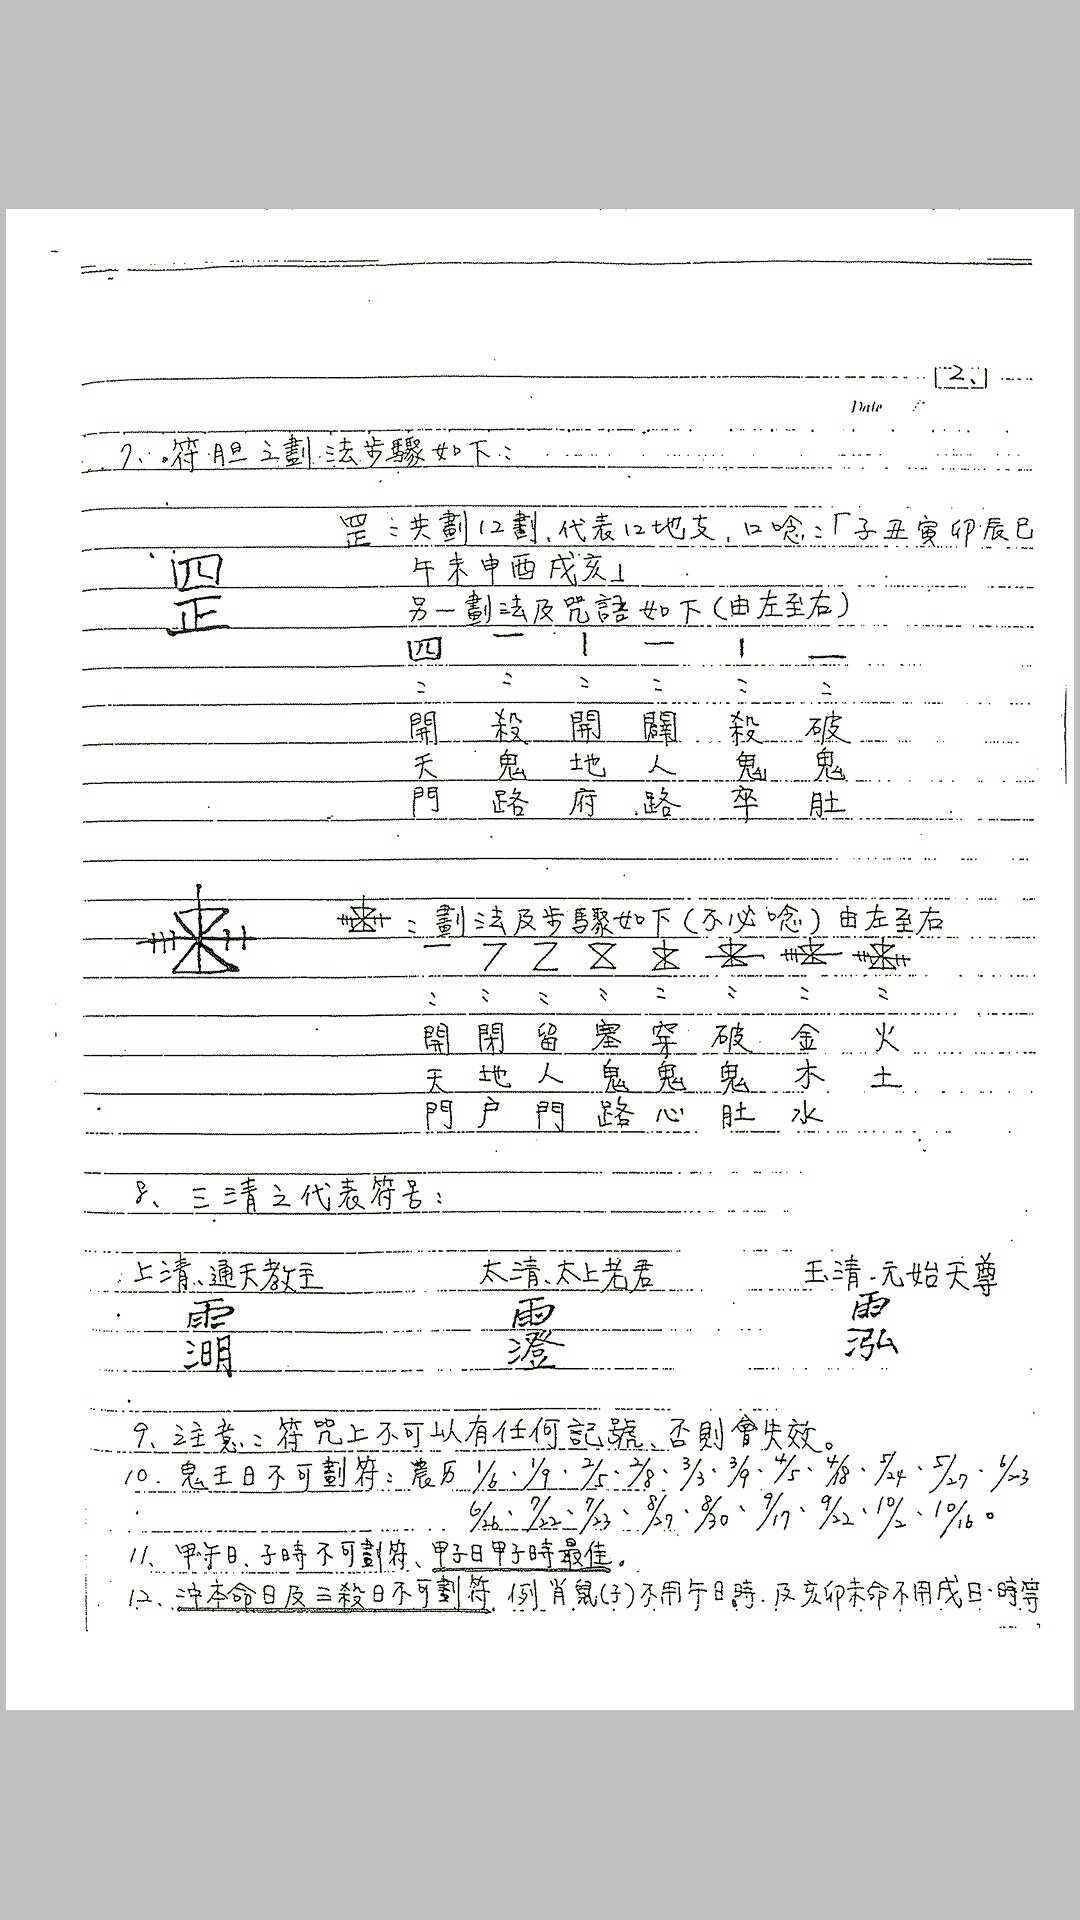 2、
Date
7、符胆之劃法步驟如下：
罡：共劃12劃、代表12地支，口唸：「子丑寅卯辰巳
午未申酉戌亥」
另一劃法及咒語如下(由左至右)
四 一 丨 一 丨 一
： ： ： ： ： ：
開 殺 開 關 殺 破
天 鬼 地 人 鬼 鬼
門 路 府 路 卒 肚
：劃法及步驟如下(不必唸)由左至右
： ： ： ： ： ： ： ：
開 閉 留 塞 穿 破 金 火
天 地 人 鬼 鬼 鬼 木 土
門 户 門 路 心 肚 水
8、三清之代表符号：
上清、通天教主 太清、太上老君 玉清、元始天尊
雨 雨 雨
澄 泓
9、注意：符咒上不可以有任何記號、否則會失效。
10、鬼王日不可劃符：農历1/6、1/9、2/5、2/8、3/3、3/9、4/5、4/18、5/24、5/27、6/23
6/26、7/22、7/23、8/27、8/30、9/17、9/22、10/2、10/16。
11、甲午日、子時不可劃符、甲子日甲子時最佳。
12、沖本命日及三殺日不可劃符 例肖鼠(子)不用午日時、及亥卯未命不用戌日、時等